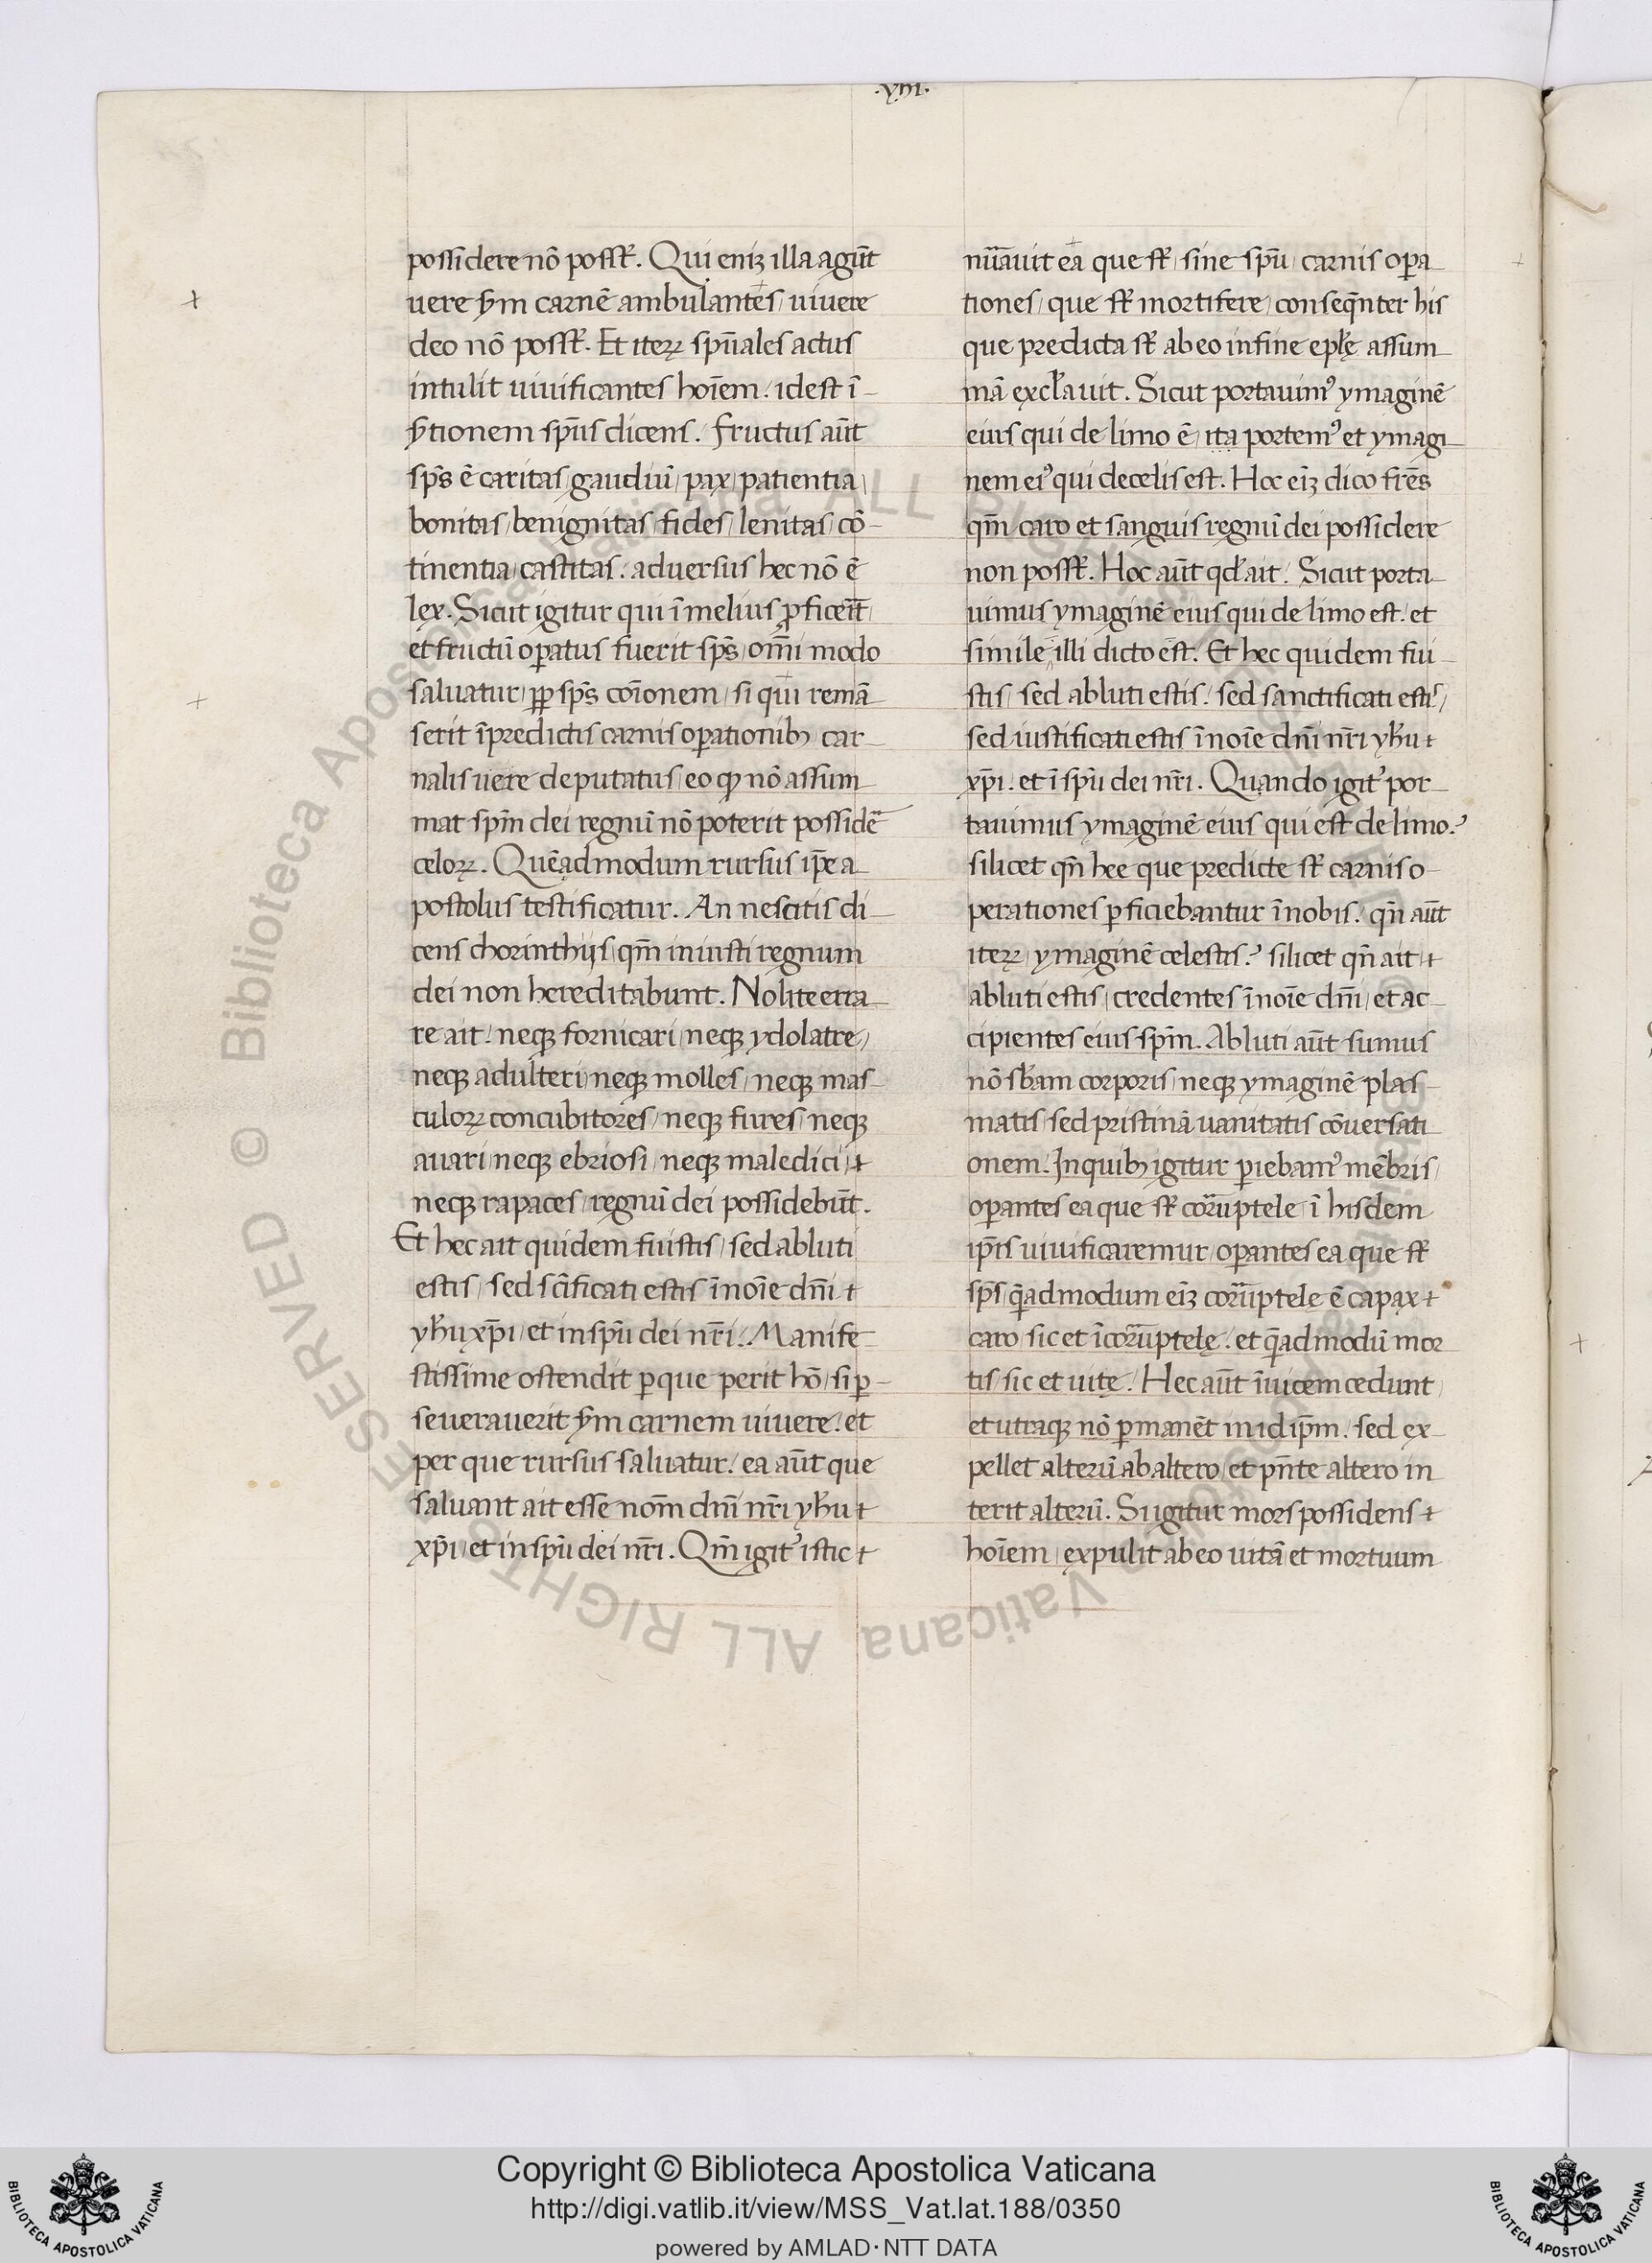 .viii.
possidere nō possſt. Qui eniȝ illa agūt
uere ẜm carnē ambulantes uiuere
deo nō possſt. Et iteꝝ spūales actus
intulit uiuificantes hoīem. idest ī-
ẜtionem spūs dicens. fructus aūt
spūs ē caritas gaudiū pax patientia
bonitas benignitas fides lenitas cō-
tinentia castitas. aduersus hec nō ē
lex. Sicut igitur qui ī melius ꝓficeīt
et fructū oꝑatus fuerit spūs om̄i modo
saluatur ꝓp spūs coīonem si qui remā
serit ī predictis carnis oꝑationibȝ car-
nalis uere deputatus eo qꝫ nō assum
mat spm̄ dei regnū nō poterit posside
celoꝝ. Quēadmodum rursus ip̄e a
postolus testificatur. An nescitis di-
cens chorinthijs qm̄ iniusti regnum
dei non hereditabunt. Nolite erra
re ait. neqꝫ fornicari neqꝫ ydolatre
neqꝫ adulteri neqꝫ molles neqꝫ mas-
culoꝝ concubitores neqꝫ fures neqꝫ
auari neqꝫ ebriosi neqꝫ maledici
neqꝫ rapaces regnū dei possidebūt.
Et hec ait quidem fuistis sed abluti
estis sed sc̄ificati estis ī noīe dn̄i
yh̄u xp̄i et in spū dei nr̄i. Manife-
stissime ostendit ꝑ que perit hō si ꝑ-
seuerauerit ẜm carnem uiuere. et
per que rursus saluatur. ea aūt que
saluant ait esse nom̄ dn̄i nr̄i yh̄u
xp̄i et in spū dei nr̄i. Qm̄ igit' istic
nūauit ea que sſt sine spū carnis oꝑa
tiones que sſt mortifere conseq̄nter his
que predicta sſt ab eo in fine epl̄ę assum
mā excl̄auit. Sicut portauimꝰ ymaginē
eius qui de limo ē ita portemꝰ et ymagi
nem eiꝰ qui de celis est. Hoc eiȝ dico fr̄es
qm̄ caro et sanguis regnū dei possidere
non possſt. Hoc aūt qd̄ ait. Sicut porta
uimus ymaginē eius qui de limo est. et
simile illi dicto ēst. Et hec quidem fui
stis sed abluti estis. sed sanctificati estis
sed iustificati estis ī noīe dn̄i nr̄i yh̄u
xp̄i. et ī spū dei nr̄i. Quando igit' por-
tauimus ymaginē eius qui est de limo.
silicet qn̄ hee que predicte sſt carnis o-
perationes ꝑficiebantur ī nobis. qn̄ aūt
iteꝝ ymaginē celestis. silicet qn̄ ait
abluti estis credentes ī noīe dn̄i et ac-
cipientes eius spm̄. Abluti aūt sumus
nō sb̄am corporis neqꝫ ymaginē plas-
matis sed pristinā uanitatis cōuersati
onem. In quibȝ igitur ꝑiebamꝰ mēbris
oꝑantes ea que sſt coruptele ī hisdem
ip̄is uiuificaremur oꝑantes ea que sſt
spūs q̄admodum eiȝ coruptelę ē capax
caro sic et īcoruptelę. et q̄admodū mor
tis sic et uitę. Hec aūt īuicem cedunt
et utraqꝫ nō ꝑmanēt in id ip̄m. sed ex-
pellet alterū ab altero et pn̄te altero in
terit alterū. Si igitur mors possidens
hoīem expulit ab eo uitā et mortuum
© Biblioteca Apostolica Vaticana ALL RIGHTS RESERVED
Copyright © Biblioteca Apostolica Vaticana
http://digi.vatlib.it/view/MSS_Vat.lat.188/0350
powered by AMLAD·NTT DATA
BIBLIOTECA APOSTOLICA VATICANA
BIBLIOTECA APOSTOLICA VATICANA